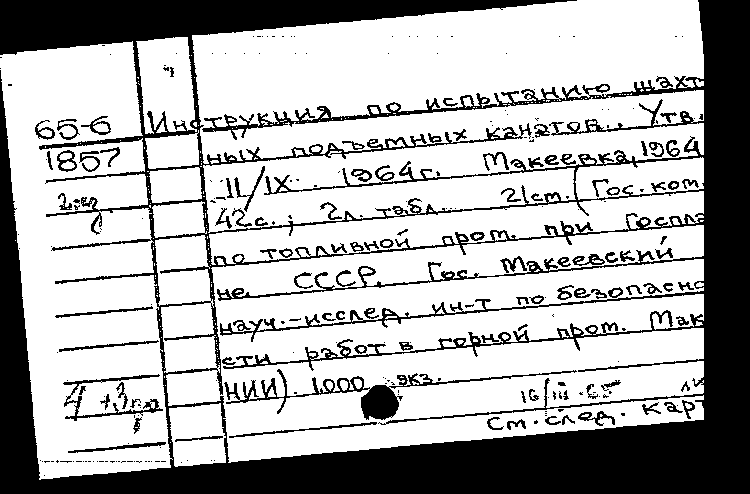 65-6 Инструкция по испытанию шахт-
1857 ных подъемных канатов. Утв.
2 экз 11/IX 1964г. Макеевка, 1964
42с.; 2л. табл. 21см. (Гос. ком.
по топливной пром. при Госпла
не СССР. Гос. Макеевский
науч.-исслед. ин-т по безопасно
сти работ в горной пром. Мак
НИИ). 1.000 экз.
4 +3
16/III-65
См. след. карт